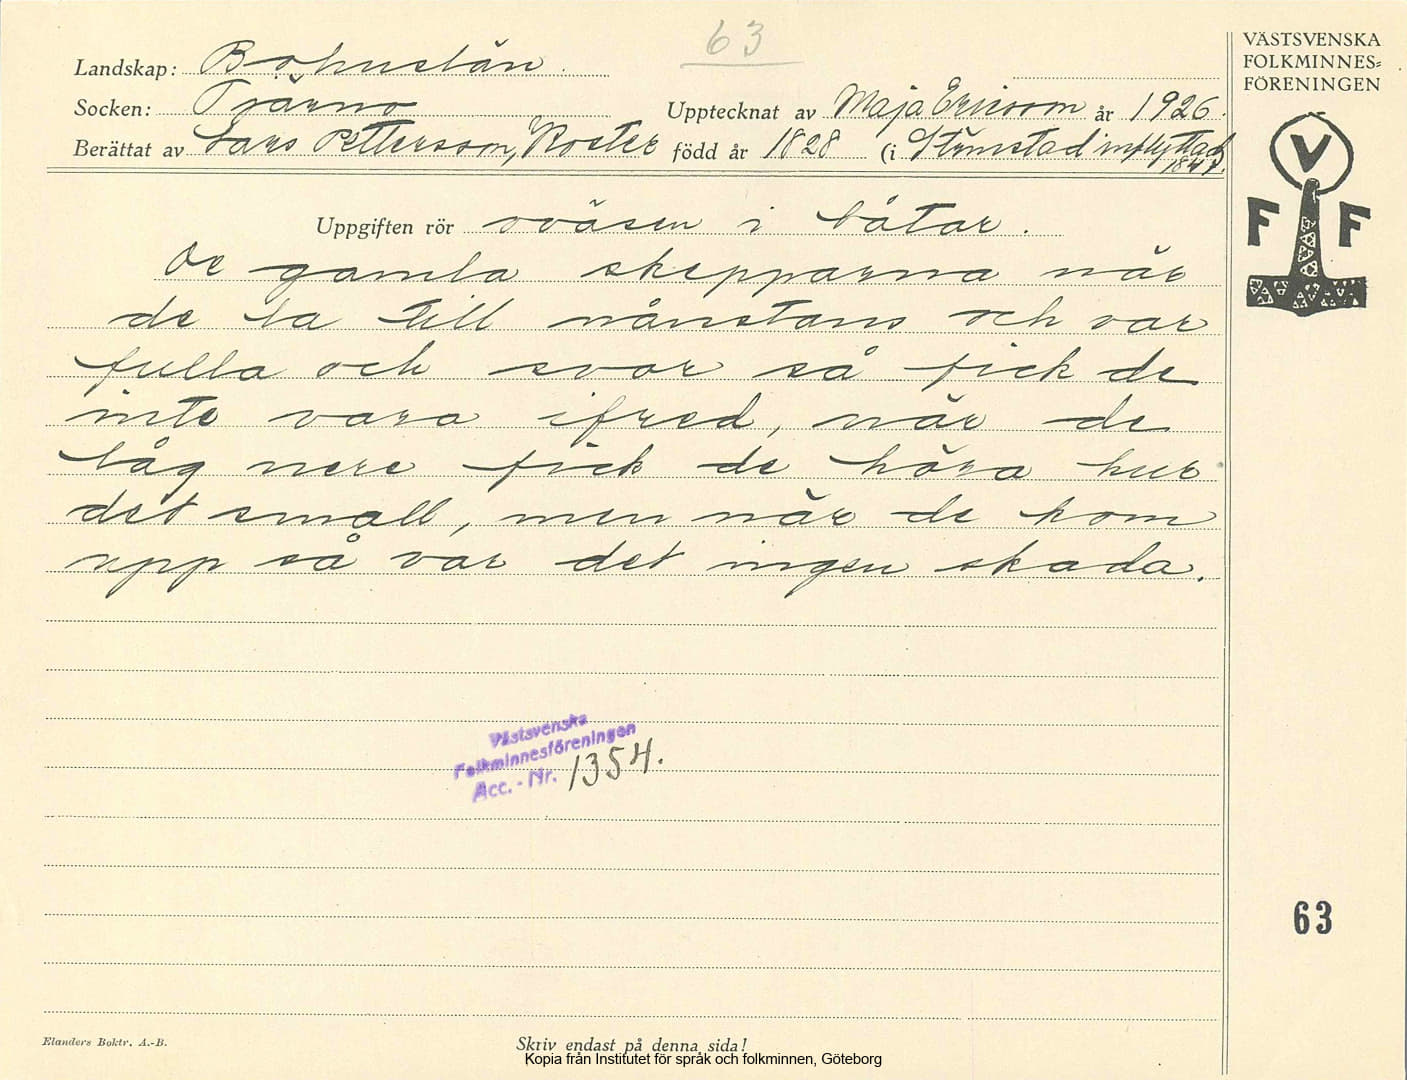 63
VÄSTSVENSKA
FOLKMINNES=
FÖRENINGEN
Landskap: Bohuslän.
Socken: Tjärno Upptecknat av Maja Ericson år 1926.
Berättat av Lars Pettersson, Koster född år 1828 (i Strömstad inflyttad
V
F F
Uppgiften rör oväsen i båtar.
De gamla skepparna när
de la till nånstans och var
fulla och svor så fick de
inte vara ifred, när de
låg nere fick de höra hur
det small, men när de kom
upp så var det ingen skada.
Västsvenska
Folkminnesföreningen
Acc. - Nr. 1354.
63
Elanders Boktr. A.-B.
Skriv endast på denna sida!
Kopia från Institutet för språk och folkminnen, Göteborg